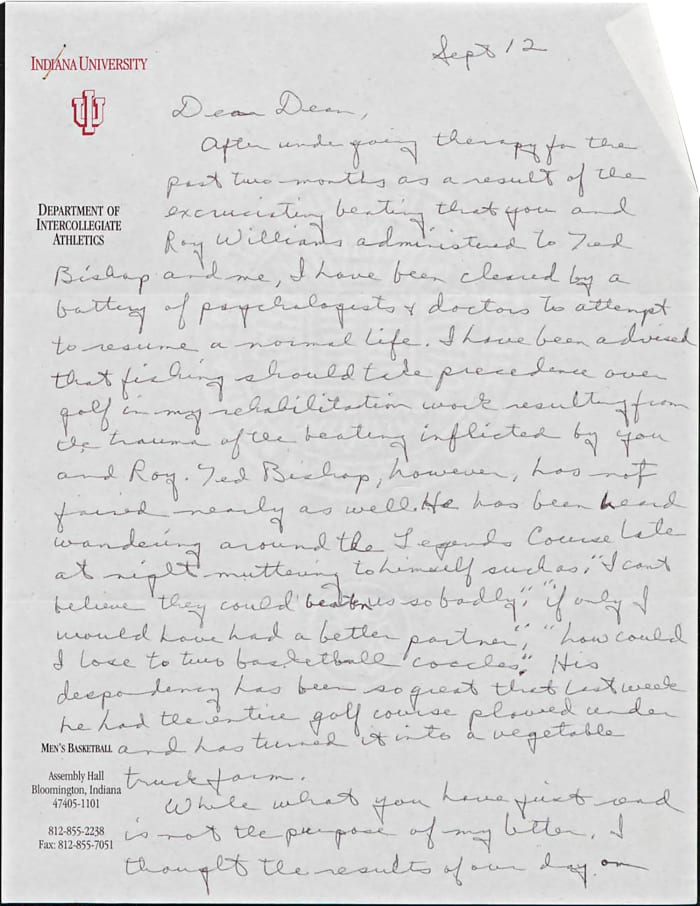 Sept 12
INDIANA UNIVERSITY
Dear Dean,
After undergoing therapy for the
past two months as a result of the
DEPARTMENT OF
INTERCOLLEGIATE
ATHLETICS
excruciating beating that you and
Roy Williams administered to Ted
Bishop and me, I have been cleared by a
battery of psychologists & doctors to attempt
to resume a normal life. I have been advised
that fishing should take precedence over
golf in my rehabilitation work resulting from
the trauma of the beating inflicted by you
and Roy. Ted Bishop, however, has not
faired nearly as well. He has been heard
wandering around the Legends Course late
at night muttering to himself such as; "I cant
believe they could beat us so badly"; "if only I
would have had a better partner"; "how could
I lose to two basketball coaches". His
despondency has been so great that last week
he had the entire golf course plowed under
MEN'S BASKETBALL
and has turned it into a vegetable
truck farm.
Assembly Hall
Bloomington, Indiana
47405-1101
While what you have just read
812-855-2238
Fax: 812-855-7051
is not the purpose of my letter, I
thought the results of our day on